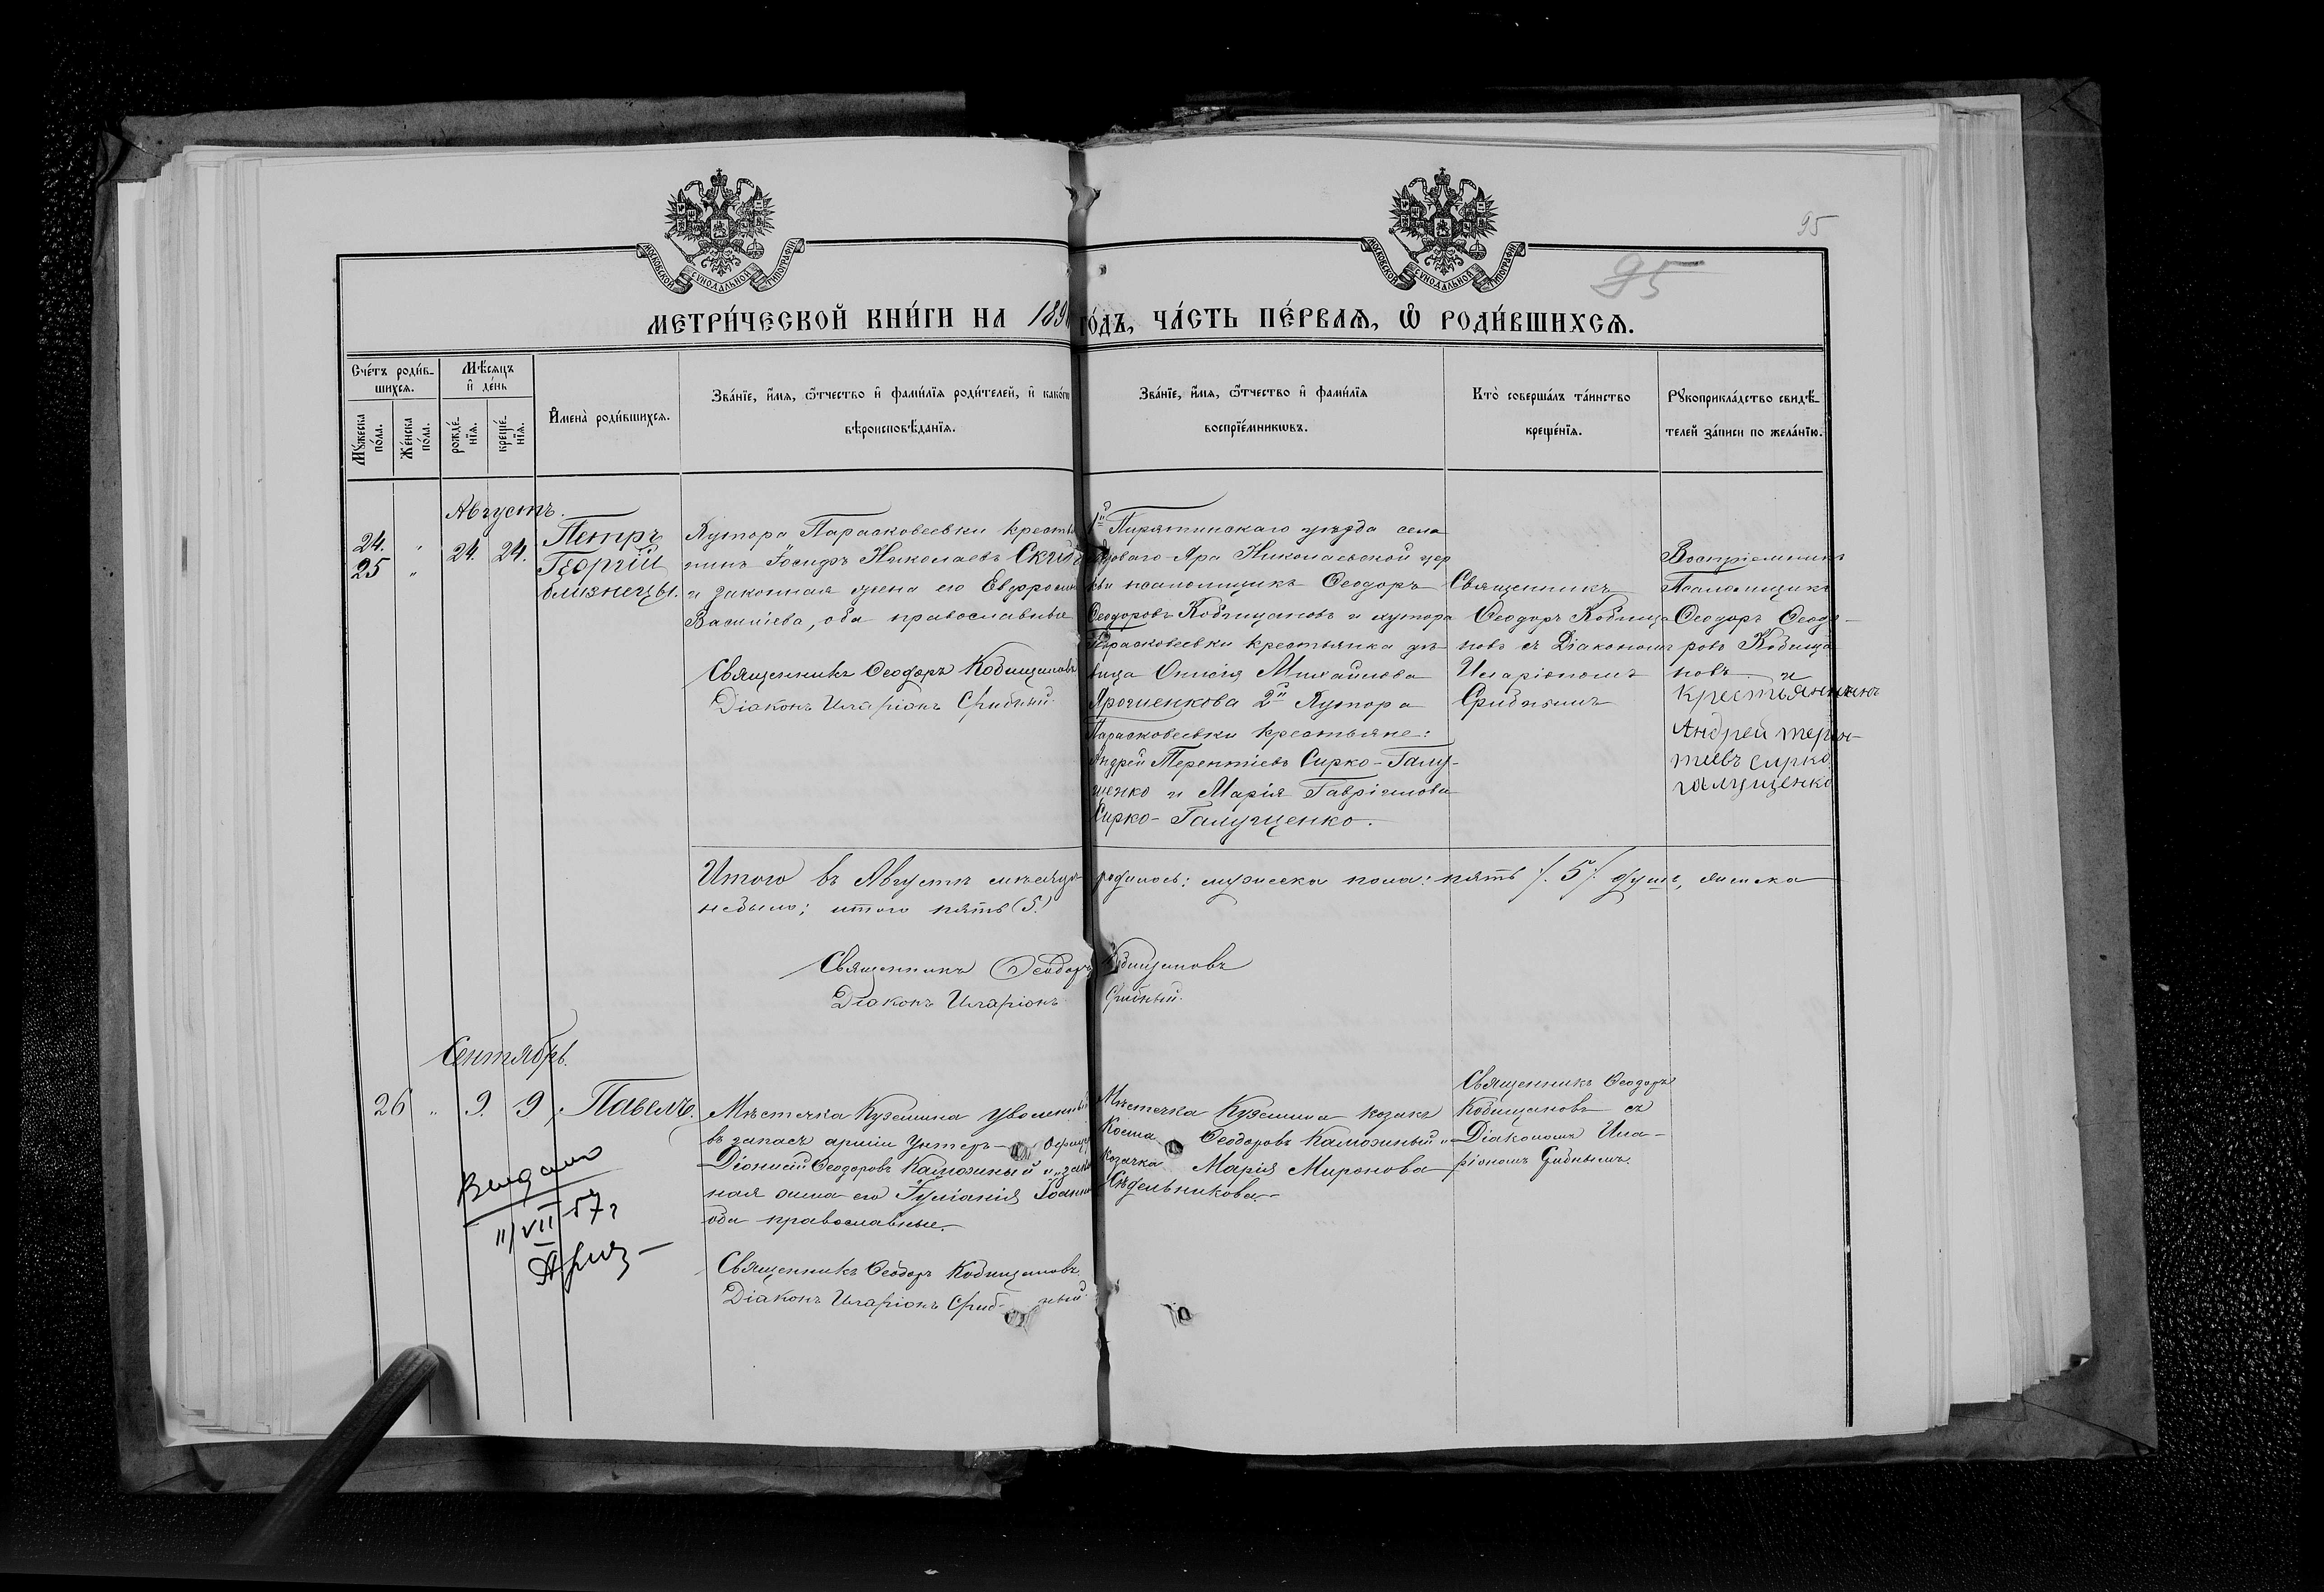 95
95
МОСКОВСКОЙ СУНОДАЛЬНОЙ ТИПОГРАФІИ
МОСКОВСКОЙ СУНОДАЛЬНОЙ ТИПОГРАФІИ
МЕТРИ́ЧЕСКОЙ КНИ́ГИ НА 189 ГО́ДЪ, ЧА́СТЬ ПЕ́РВАѦ, Ѡ РОДИ́ВШИХСѦ.
Счетъ роди́в-
шихсѧ.
Мꙋжеска
по́ла.
Же́нска
по́ла.
Мѣ́сѧцъ
и де́нь
рожде́-
нїѧ.
креще́-
нїѧ.
И҆мена̀ роди́вшихсѧ.
Зва́нїе, и҆́мѧ, ѻ҆́тчество и҆ фами́лїѧ роди́телей, и҆ како́гѡ
вѣроисповѣ́данїѧ.
Зва́нїе, и҆́мѧ, ѻ҆́тчество и҆ фами́лїѧ
воспрїе́мникѡвъ.
Кто̀ соверша́лъ та́инство
креще́нїѧ.
Рꙋкоприкла́дство свидѣ́-
телей за́писи по жела́нїю.
Августъ.
24. „ 24. 24. Петръ
25 „ Георгій
близнецы.
Хутора Парасковеевки кресть
нинъ Іосифъ Николаевъ
и законная жена его Евфросин
Василіева, оба православные
Священникъ Ѳеодоръ Кобищановъ
Діаконъ Иларіонъ Срибный.
1й Пирятинскаго уѣзда села
Яра Николаевской цер
кви псаломщикъ Ѳеодоръ
Ѳеодоровъ Кобищановъ и хутора
Парасковеевки крестьянка дѣ-
вица Михайлова
Ярошенкова 2й Хутора
Парасковеевки крестьяне:
Андрей Терентіевъ Сирко-Галу-
щенко и Марія Гавріилова
Сирко-Галущенко.
Священникъ
Ѳеодоръ Кобища-
новъ съ Діакономъ
Иларіономъ
Срибнымъ
Воспріемники
Псаломщикъ
Ѳеодоръ Ѳеодо-
ровъ Кобища
новъ и
крестьянинъ
Андрей терен-
тіевъ сирко
галущенко
Итого въ Августѣ мѣсяцѣ родилось: мужеска пола: пять /.5/. душъ, женска
небыло; итого пять (5.)
Священникъ Ѳеодоръ Кобищановъ
Діаконъ Иларіонъ Срибный.
Сентябрь.
26 „ 9. 9 Павелъ.
Мѣстечка Куземина уволенный
въ запасъ арміи Унтеръ-Офицеръ
Діонисій Ѳеодоровъ Каможный и зако
ная жена его Іуліанія Іоанно
оба православные.
Священникъ Ѳеодоръ Кобищановъ
Діаконъ Иларіонъ Срибный.
Мѣстечка Куземина козакъ
Косма Ѳеодоровъ Каможный и
козачка Марія Миронова
Сѣдельникова.
Священникъ Ѳеодоръ
Кобищановъ съ
Діакономъ Ила-
ріономъ Срибнымъ.
Видано
11/VII-57г